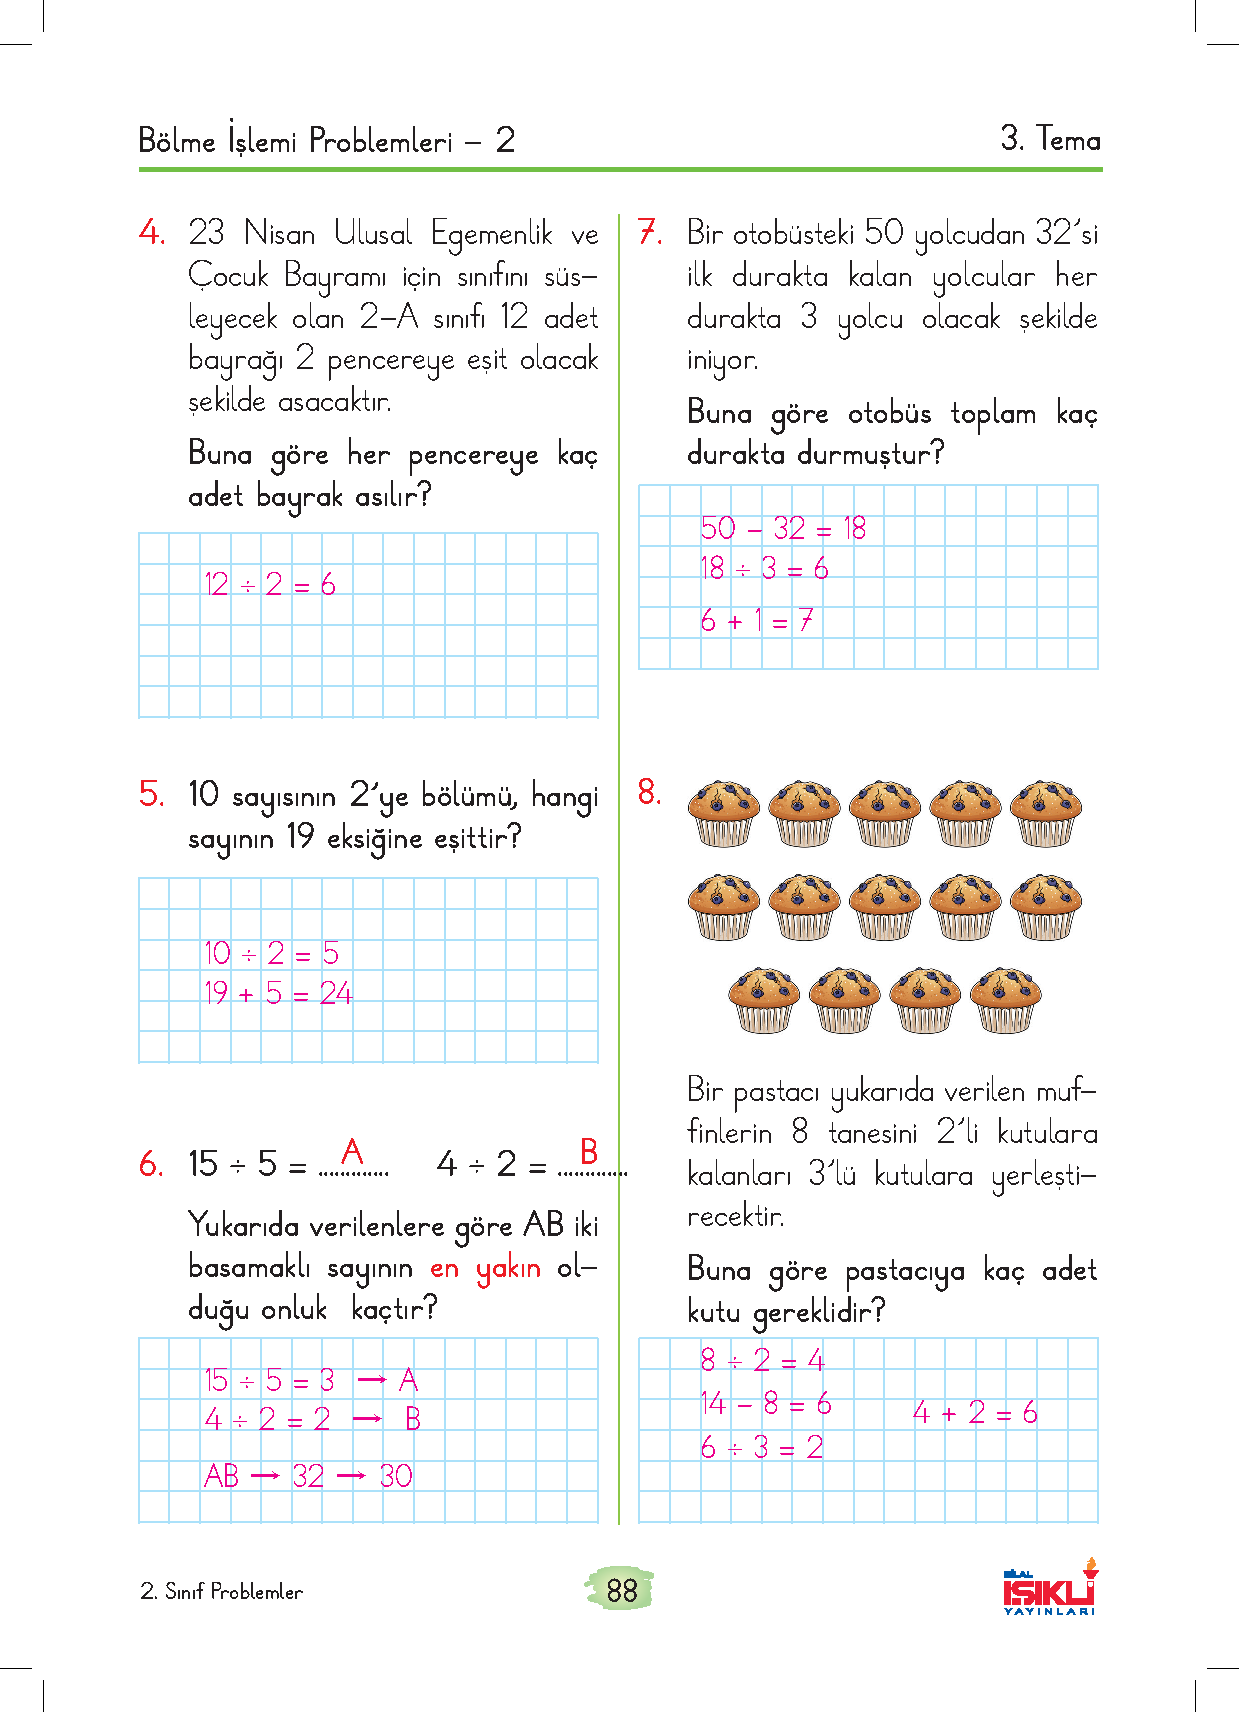 Bölme İşlemi Problemleri – 2
3. Tema
4. 23 Nisan Ulusal Egemenlik ve
Çocuk Bayramı için sınıfını süs-
leyecek olan 2-A sınıfı 12 adet
bayrağı 2 pencereye eşit olacak
şekilde asacaktır.
Buna göre her pencereye kaç
adet bayrak asılır?
12 ÷ 2 = 6
5. 10 sayısının 2'ye bölümü, hangi
sayının 19 eksiğine eşittir?
10 ÷ 2 = 5
19 + 5 = 24
6. 15 ÷ 5 = ............. A 4 ÷ 2 = ............. B
Yukarıda verilenlere göre AB iki
basamaklı sayının en yakın ol-
duğu onluk kaçtır?
15 ÷ 5 = 3 → A
4 ÷ 2 = 2 → B
AB → 32 → 30
7. Bir otobüsteki 50 yolcudan 32'si
ilk durakta kalan yolcular her
durakta 3 yolcu olacak şekilde
iniyor.
Buna göre otobüs toplam kaç
durakta durmuştur?
50 - 32 = 18
18 ÷ 3 = 6
6 + 1 = 7
8.
Bir pastacı yukarıda verilen muf-
finlerin 8 tanesini 2'li kutulara
kalanları 3'lü kutulara yerleşti-
recektir.
Buna göre pastacıya kaç adet
kutu gereklidir?
8 ÷ 2 = 4
14 - 8 = 6
4 + 2 = 6
6 ÷ 3 = 2
2. Sınıf Problemler
88
BİLAL
IŞIKLI
YAYINLARI